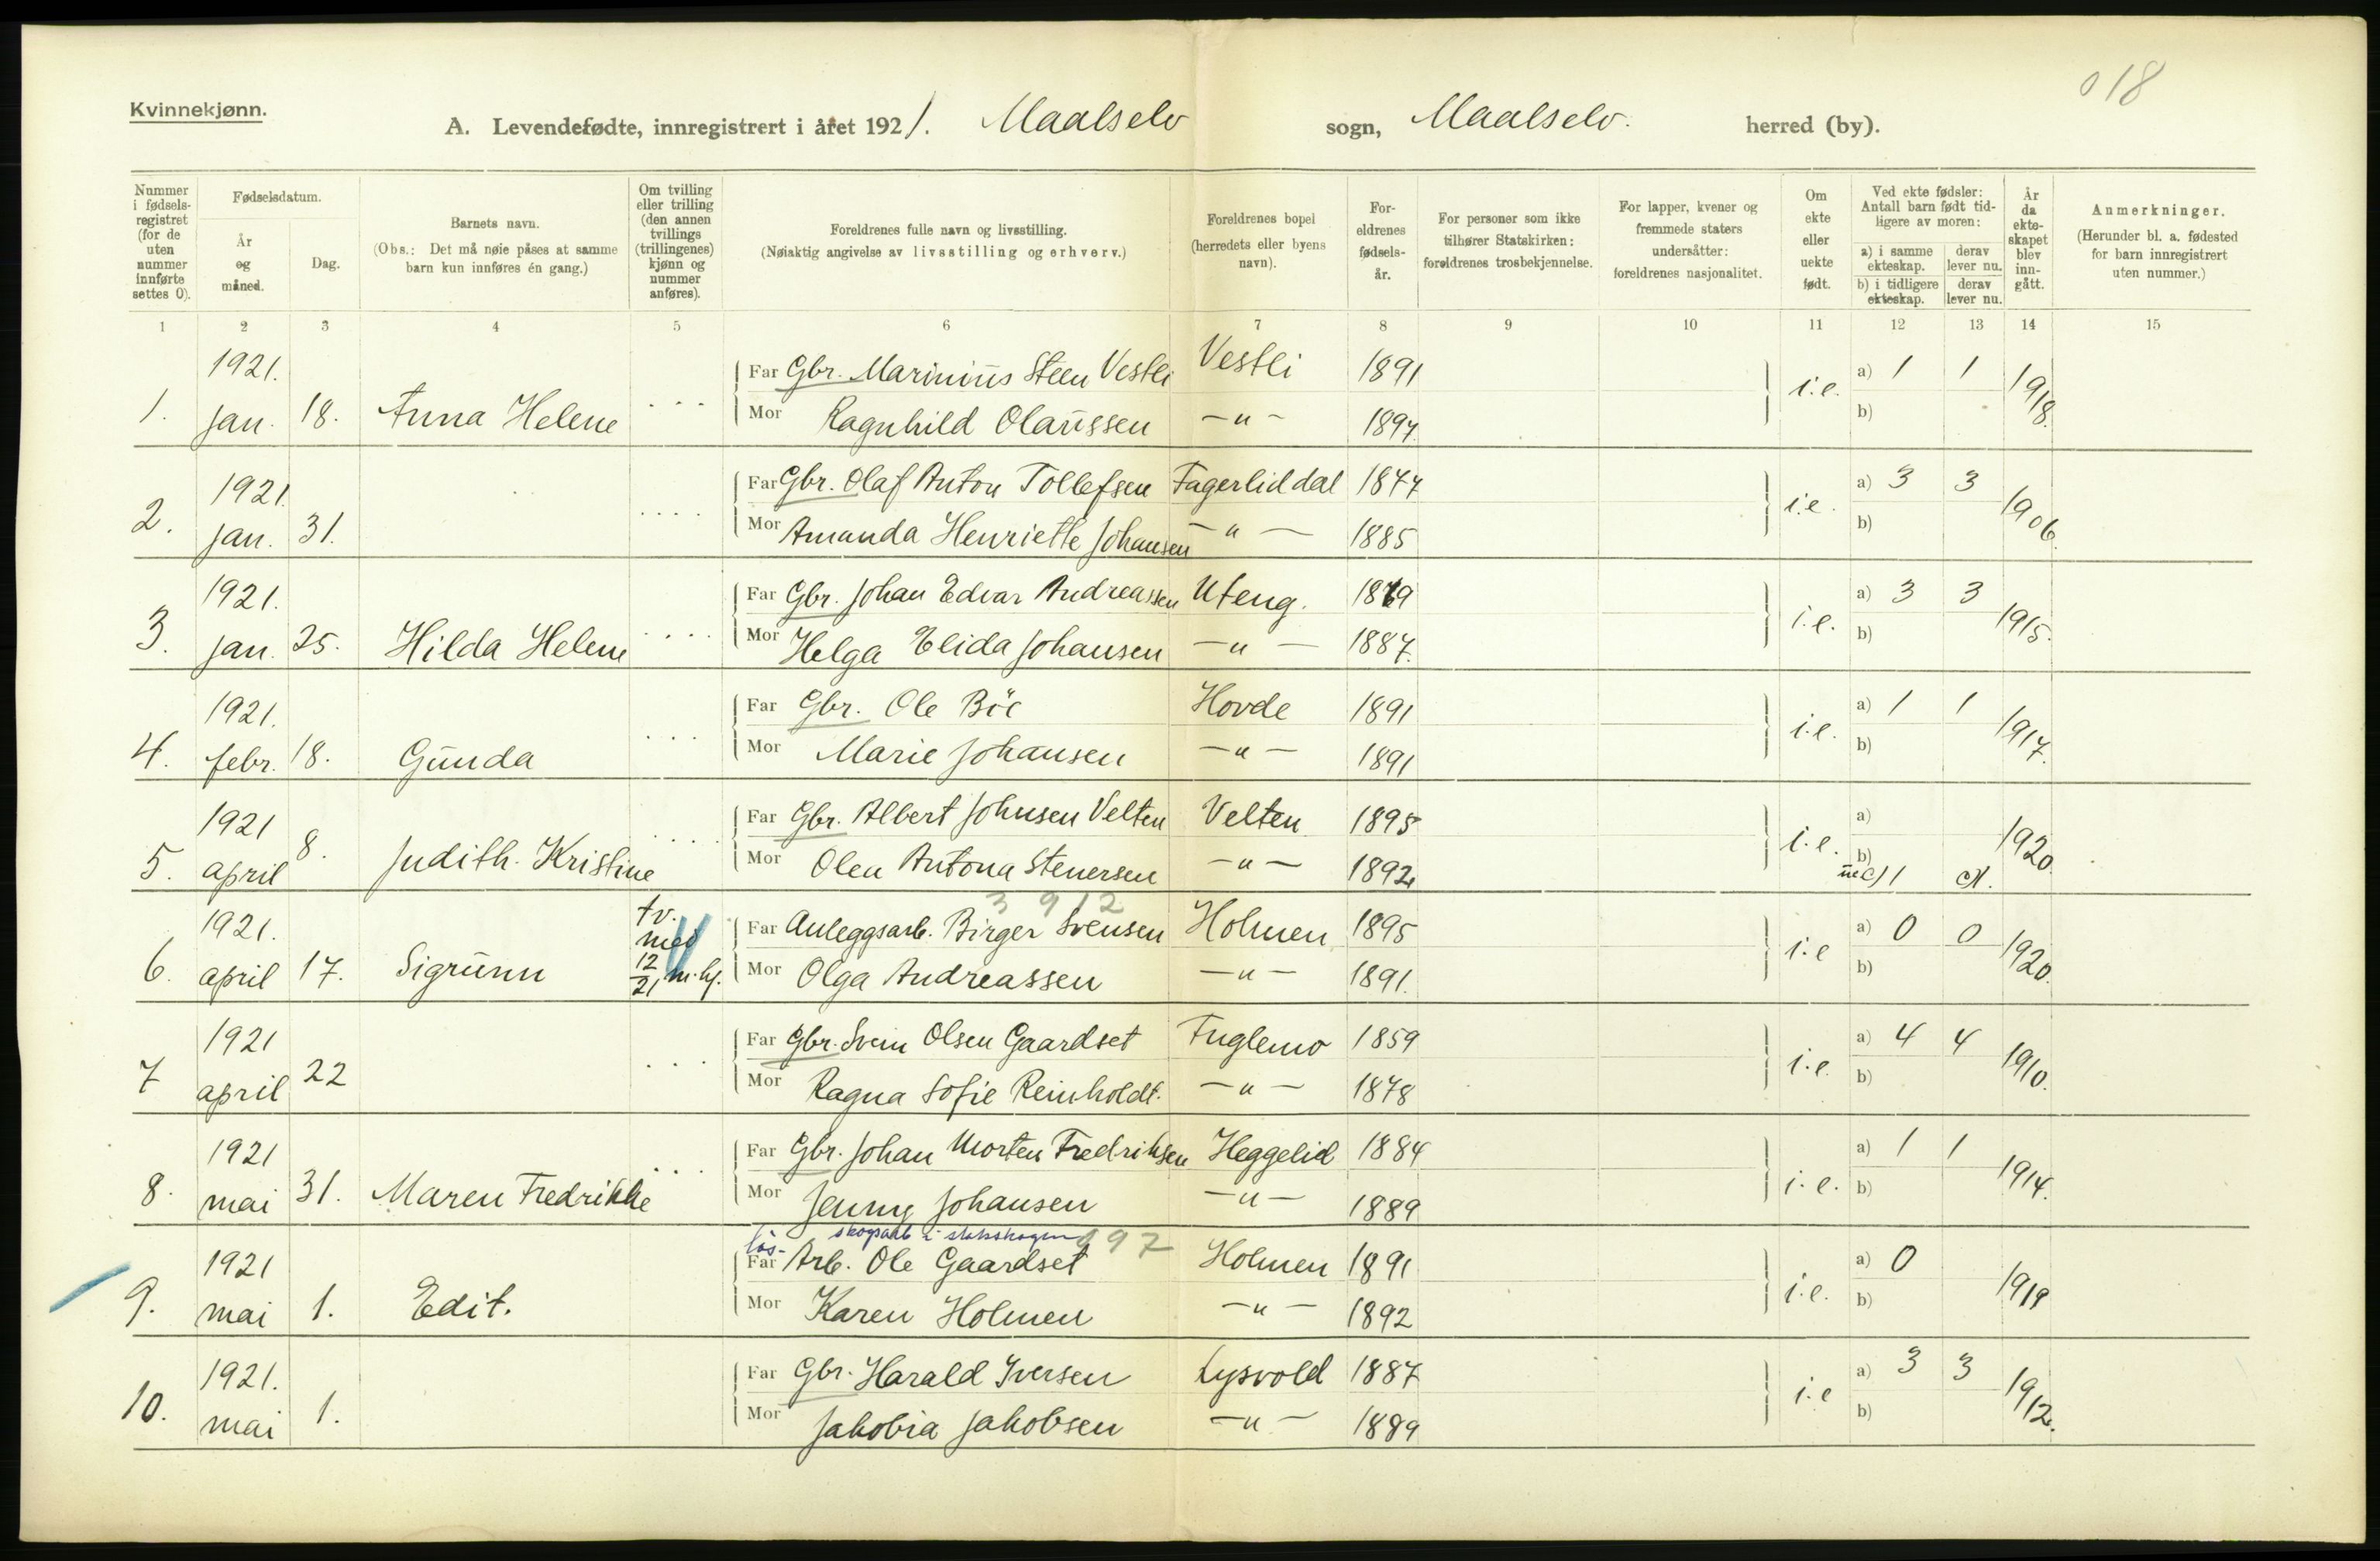 018
Kvinnekjønn.
A. Levendefødte, innregistrert i året 1921. Maalselv sogn, Maalselv. herred (by).
Nummer i fødsels-registret (for de uten nummer innførte settes 0).
Fødselsdatum.
År og måned.
Dag.
Barnets navn.
(Obs.: Det må nøie påses at samme barn kun innføres én gang.)
Om tvilling eller trilling (den annen tvillings (trillingenes) kjønn og nummer anføres).
Foreldrenes fulle navn og livsstilling.
(Nøiaktig angivelse av livsstilling og erhverv.)
Foreldrenes bopel (herredets eller byens navn).
For-eldrenes fødsels-år.
For personer som ikke tilhører Statskirken: foreldrenes trosbekjennelse.
For lapper, kvener og fremmede staters undersåtter: foreldrenes nasjonalitet.
Om ekte eller uekte født.
Ved ekte fødsler: Antall barn født tid-ligere av moren:
a) i samme ekteskap. derav lever nu.
b) i tidligere ekteskap. derav lever nu.
År da ekte-skapet blev inn-gått.
Anmerkninger.
(Herunder bl. a. fødested for barn innregistrert uten nummer.)
1 2 3 4 5 6 7 8 9 10 11 12 13 14 15
1921. Far Gbr. Marinius Steen Vestli Vestli 1891 a) 1 1
1. jan. 18. Anna Helene ... Mor Ragnhild Olaussen —"— 1897. i.e. b) 1918.
1921. Far Gbr. Olaf Anton Tollefsen Fagerliddal 1877 a) 3 3
2. jan. 31. .... Mor Amanda Henriette Johansen —"— 1885 i.e. b) 1906.
1921. Far Gbr. Johan Edvar Andreassen Uteng. 1879 a) 3 3
3. jan. 25. Hilda Helene .... Mor Helga Elida Johansen —"— 1887. i.e. b) 1915.
1921. Far Gbr. Ole Böe Hovde 1891 a) 1 1
4. febr. 18. Gunda ... Mor Marie Johansen —"— 1891 i.e. b) 1917.
1921 Far Gbr. Albert Johnsen Velten Velten 1895 a)
5. april 8. Judith Kristine ... Mor Olea Antona Stenersen —"— 1892 i.e. b) 1920.
3 9 12
1921. tv. med Far Anleggsarb. Birger Svensen Holmen 1895 a) 0 0
6. april 17. Sigrunn 12/21 m.kj. Mor Olga Andreassen —"— 1891. i.e b) 1920.
1921 Far Gbr. Svein Olsen Gaardset Fuglemo 1859 a) 4 4
7 april 22 ... Mor Ragna Sofie Reinholdt. —"— 1878 i.e. b) 1910.
1921 Far Gbr. Johan Morten Fredriksen Heggelid 1884 a) 1 1
8. mai 31. Maren Fredrikke ... Mor Jenny Johansen —"— 1889 i.e. b) 1914.
løs- skogsarb i statsskogen 97
1921 Far Arb. Ole Gaardset Holmen 1891 a) 0
9. mai 1. Edit. Mor Karen Holmen —"— 1892 i.e. b) 1919
1921. Far Gbr. Harald Iversen Lysvold 1887 a) 3 3
10. mai 1. Mor Jakobia Jakobsen —"— 1889 i.e b) 1912.